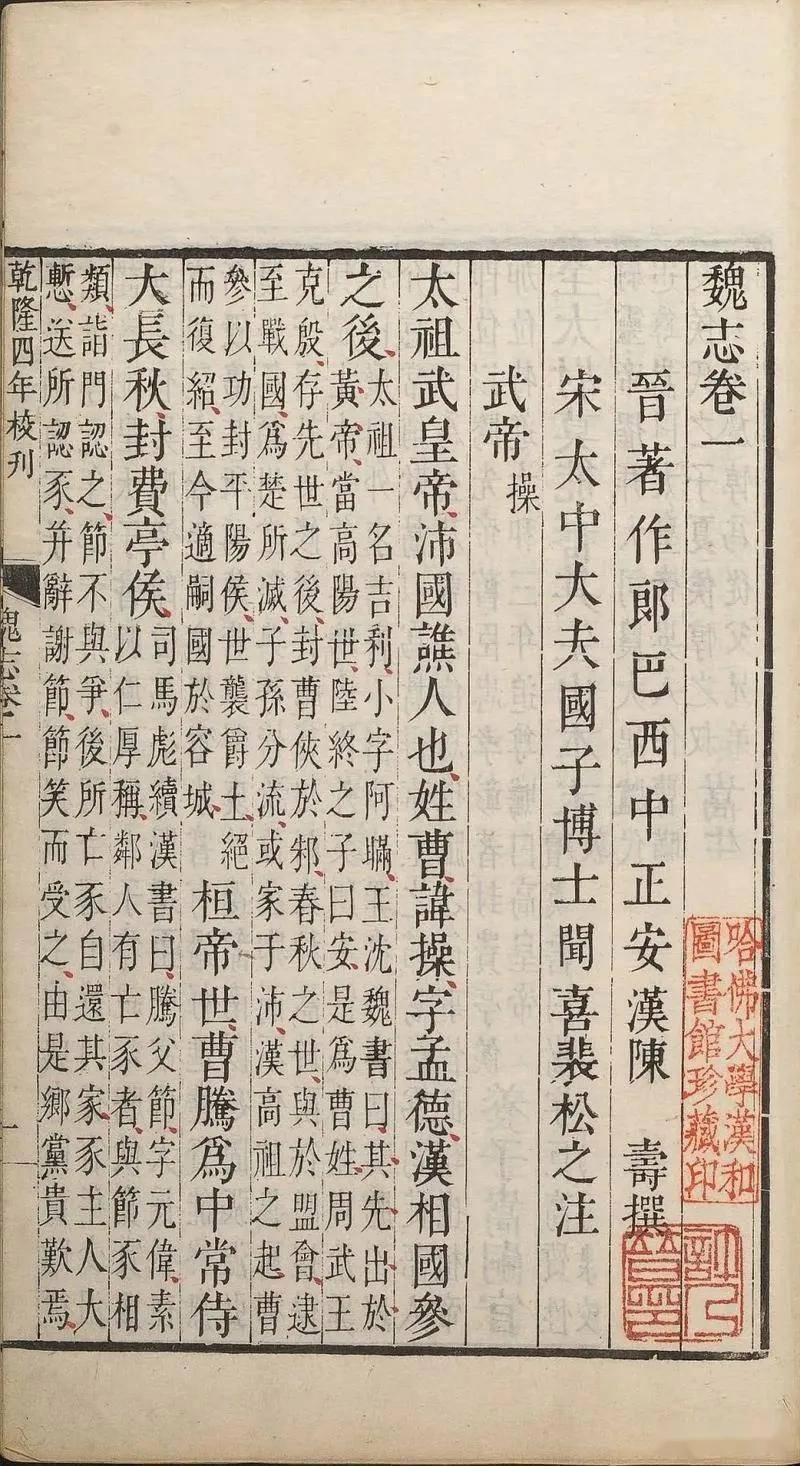 魏志卷一
晉著作郎巴西中正安漢陳壽撰
宋太中大夫國子博士聞喜裴松之注
武帝操
太祖武皇帝沛國譙人也姓曹諱操字孟德漢相國參
之後
太祖一名吉利小字阿瞞王沈魏書曰其先出於
黃帝當高陽世陸終之子曰安是爲曹姓周武王
克殷存先世之後封曹俠於邾春秋之世與於盟會逮
至戰國爲楚所滅子孫分流或家于沛漢高祖之起曹
參以功封平陽侯世襲爵土絕
而復紹至今適嗣國於容城
桓帝世曹騰爲中常侍
大長秋封費亭侯
司馬彪續漢書曰騰父節字元偉素
以仁厚稱鄰人有亡豕者與節豕相
類詣門認之節不與爭後所亡豕自還其家豕主人大
慙送所認豕幷辭謝節節笑而受之由是鄉黨貴歎焉
乾隆四年校刊
魏志卷一
一
哈佛大學漢和
圖書館珍藏印